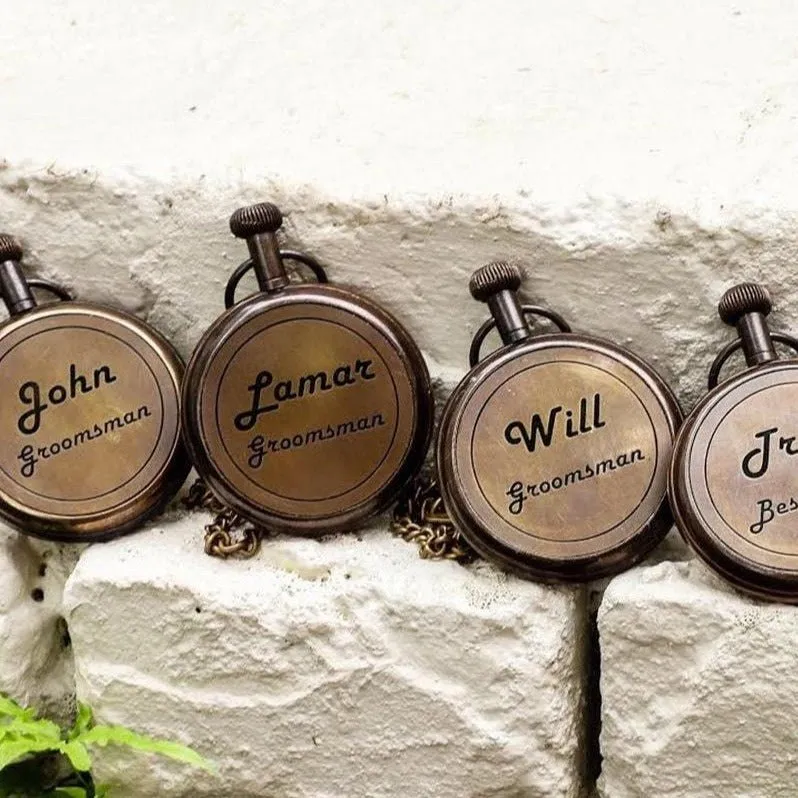 John
Groomsman
Lamar
Groomsman
Will
Groomsman